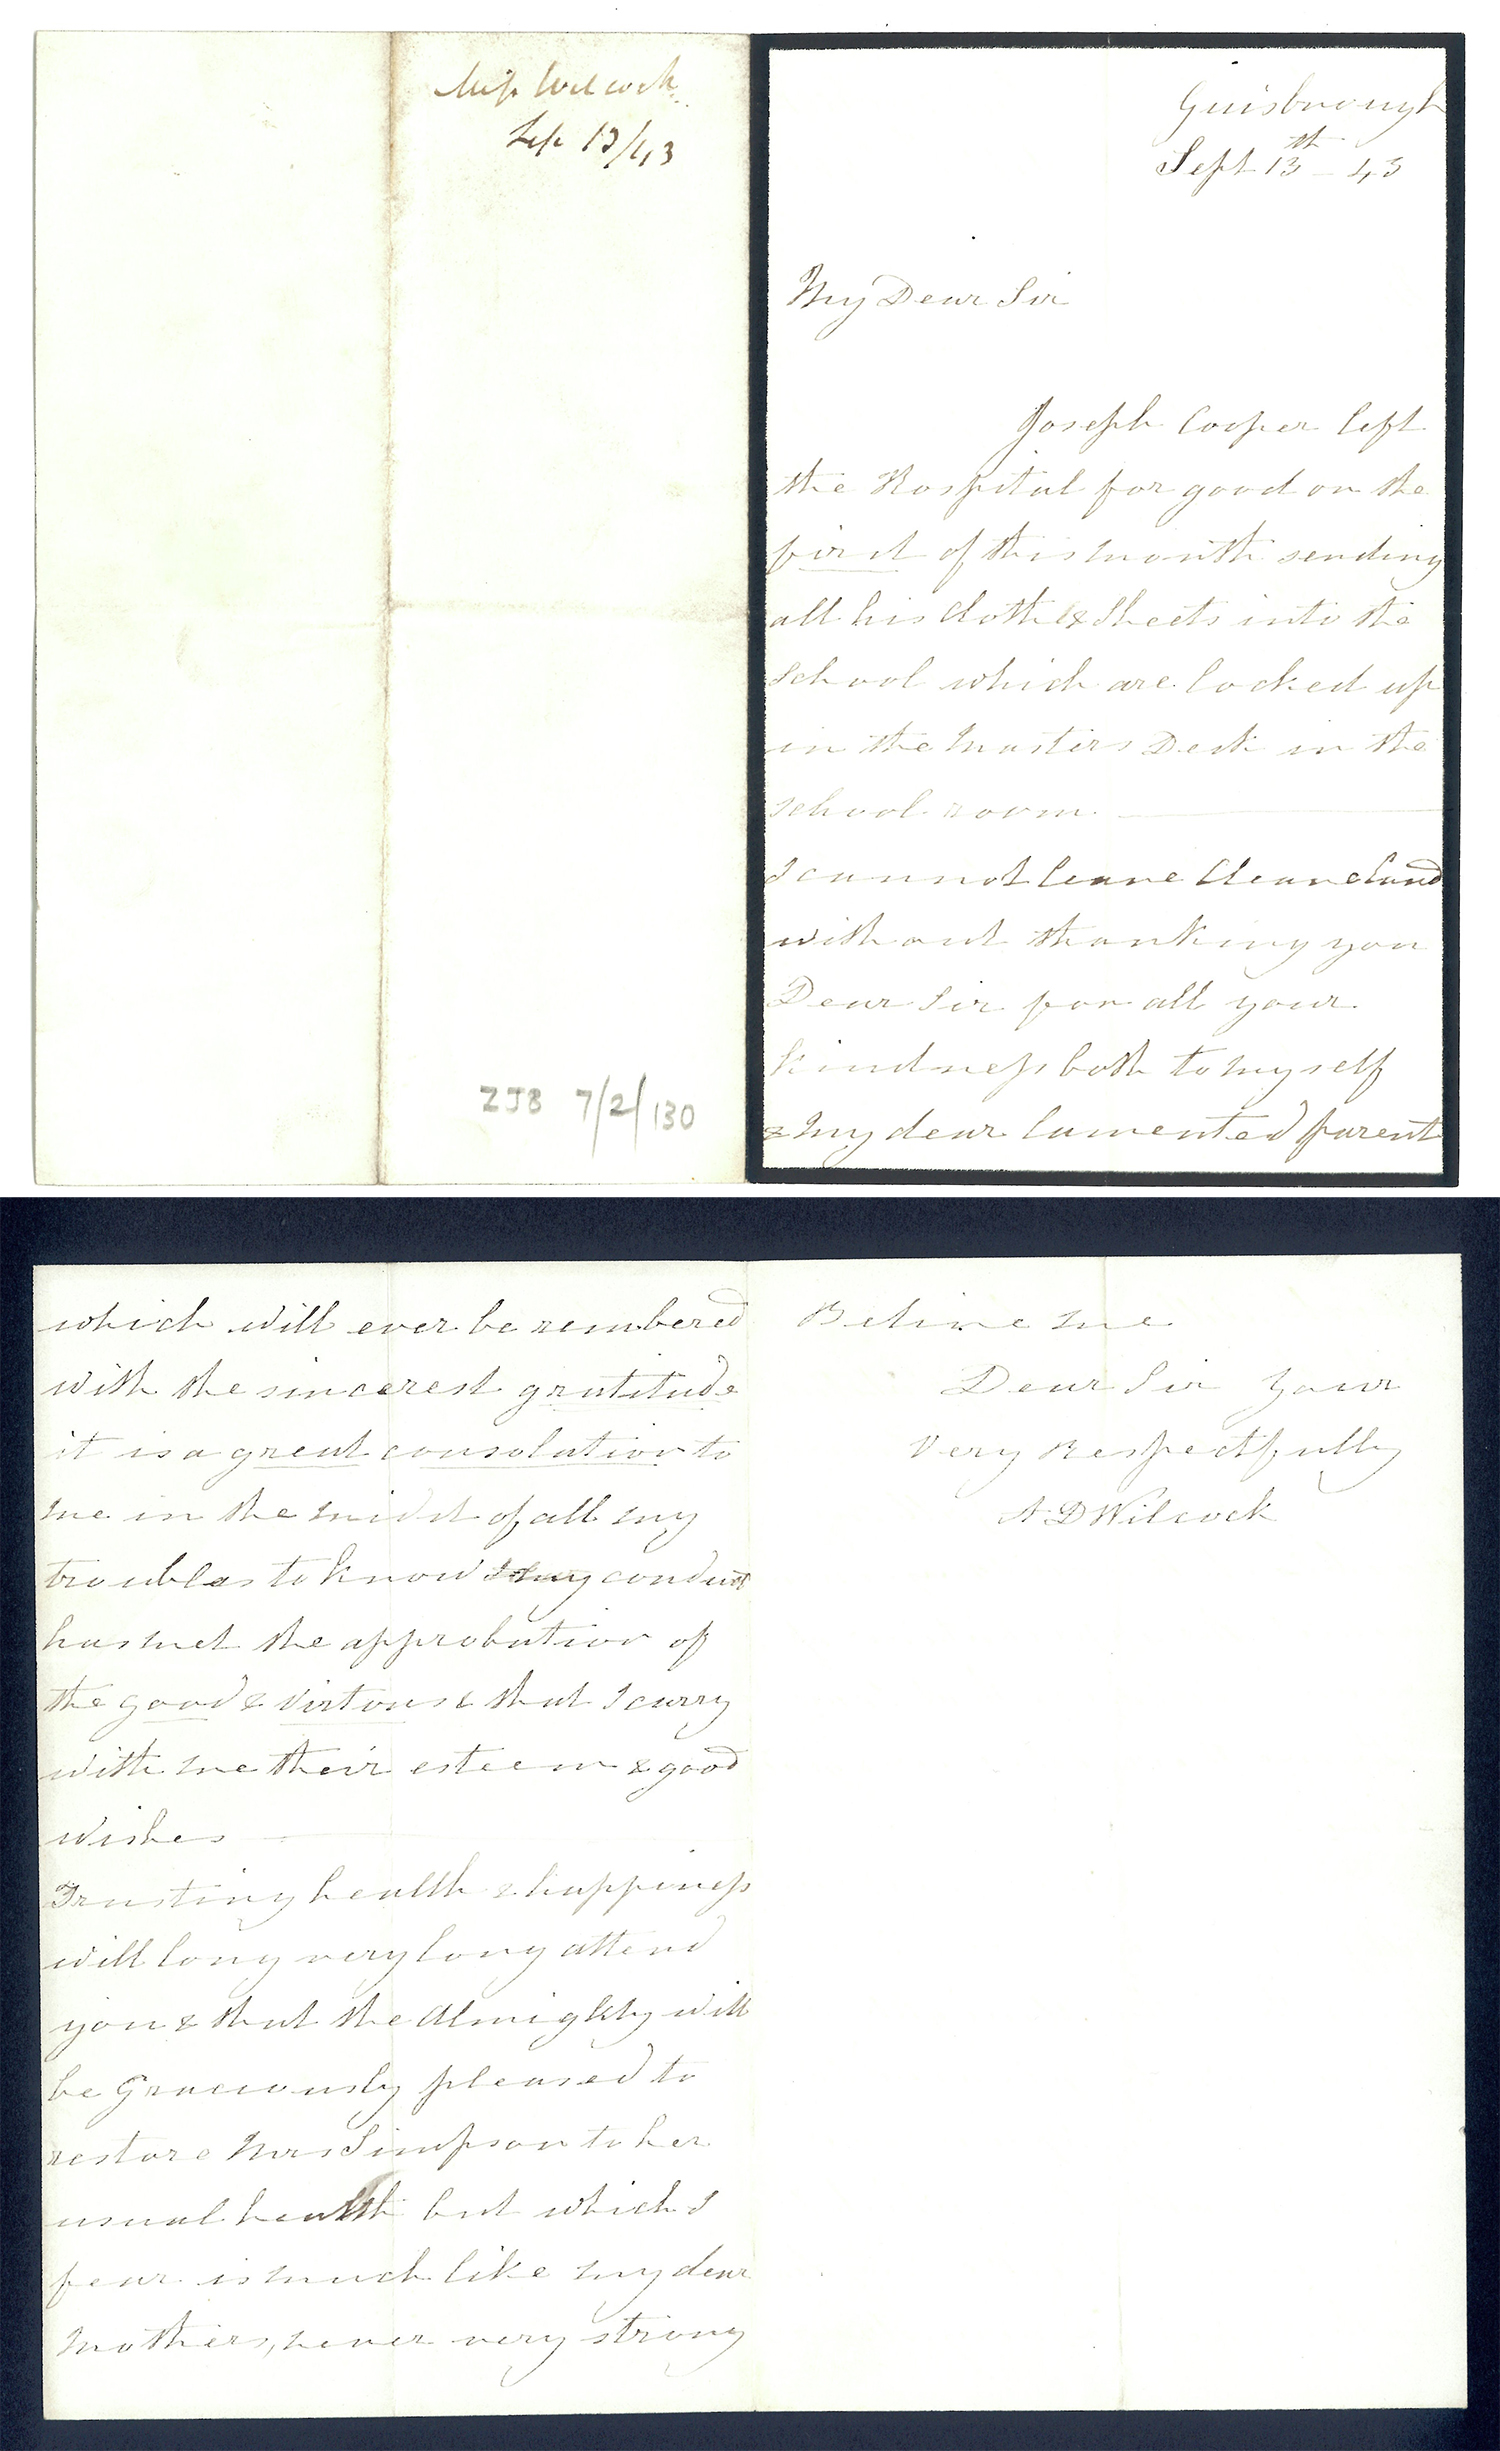 Miss Wilcock
Sep 13/43
ZJB 7/2/130
Guisbrough
Sept 13th - 43
My Dear Sir
Joseph Cooper left
the Hospital for good on the
first of this month sending
all his Cloth & Sheets into the
School which are locked up
in the Masters Desk in the
School room.
I cannot leave Cleaveland
without thanking you
Dear Sir for all your
kindness both to myself
& my dear lamented parent
which will ever be rembered
with the sincerest gratitude
it is a great consolation to
me in the midst of all my
troubles to know my conduct
has met the approbation of
the good & virtous & that I carry
with me their esteem & good
wishes
Trusting health & happiness
will long very long attend
you & that the Almighty will
be Graciously pleased to
restore Mrs Simpson to her
usual health but which I
fear is much like my dear
Mothers, never very strong
Believe me
Dear Sir Your
Very Respectfully
A D Wilcock